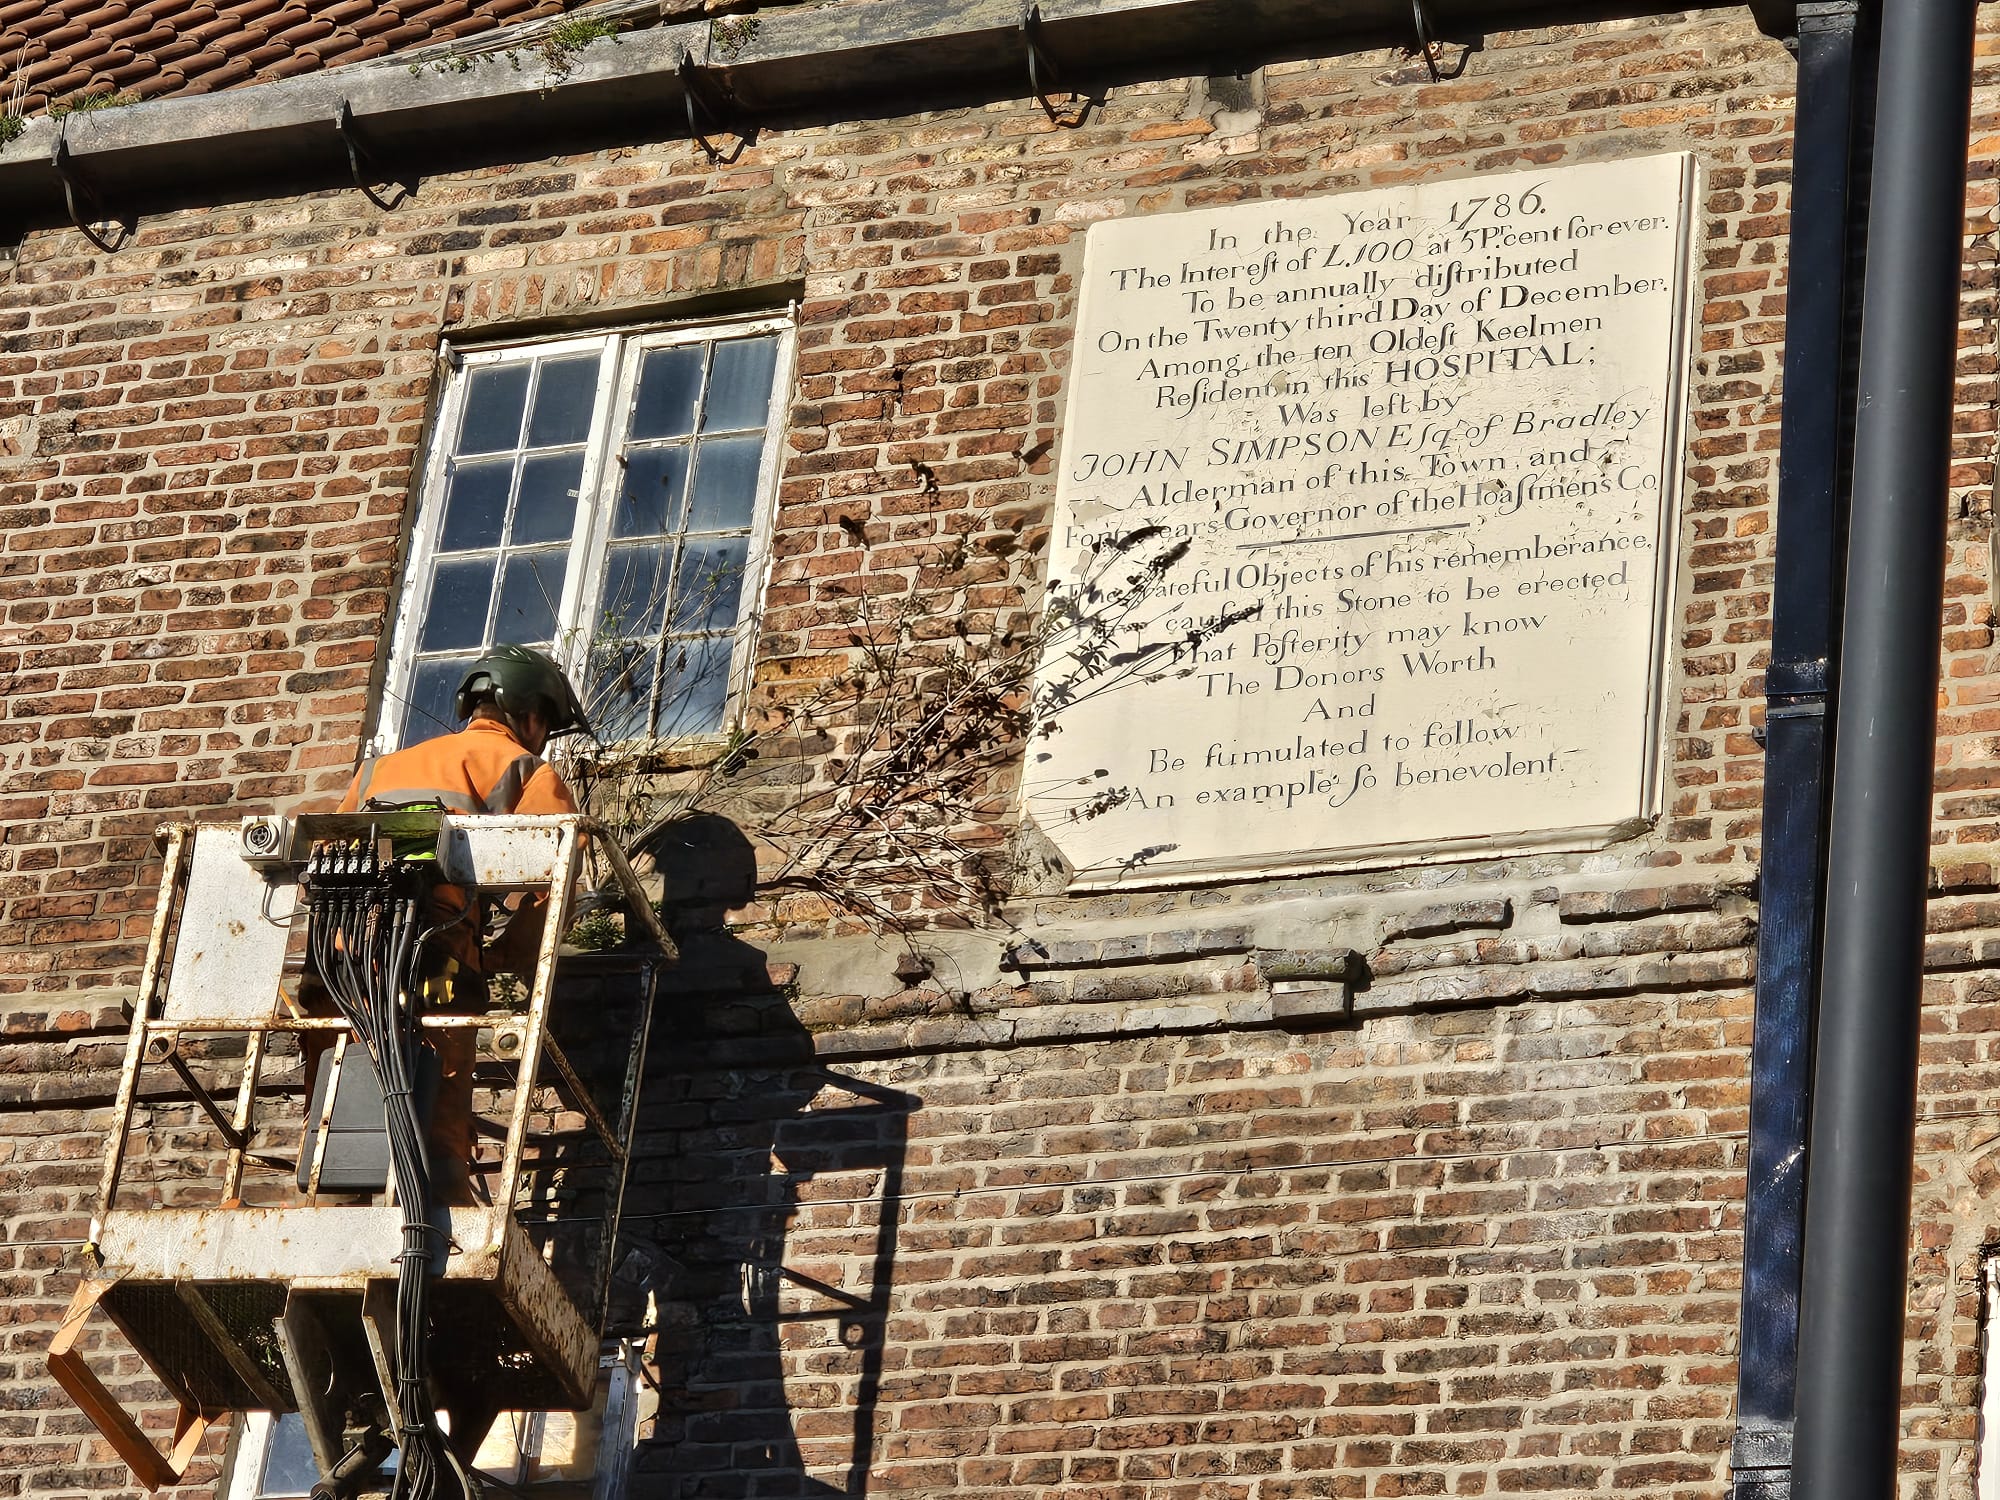 In the Year 1786.
The Intereſt of L.100 at 5 Pr. cent for ever.
To be annually diſtributed
On the Twenty third Day of December.
Among the ten Oldeſt Keelmen
Reſident in this HOSPITAL;
Was left by
JOHN SIMPSON Eſq. of Bradley
Alderman of this Town and
Forty Years Governor of the Hoaſtmen's Co.
The grateful Objects of his rememberance,
cauſed this Stone to be erected
That Poſterity may know
The Donors Worth
And
Be ſtimulated to follow
An example ſo benevolent.